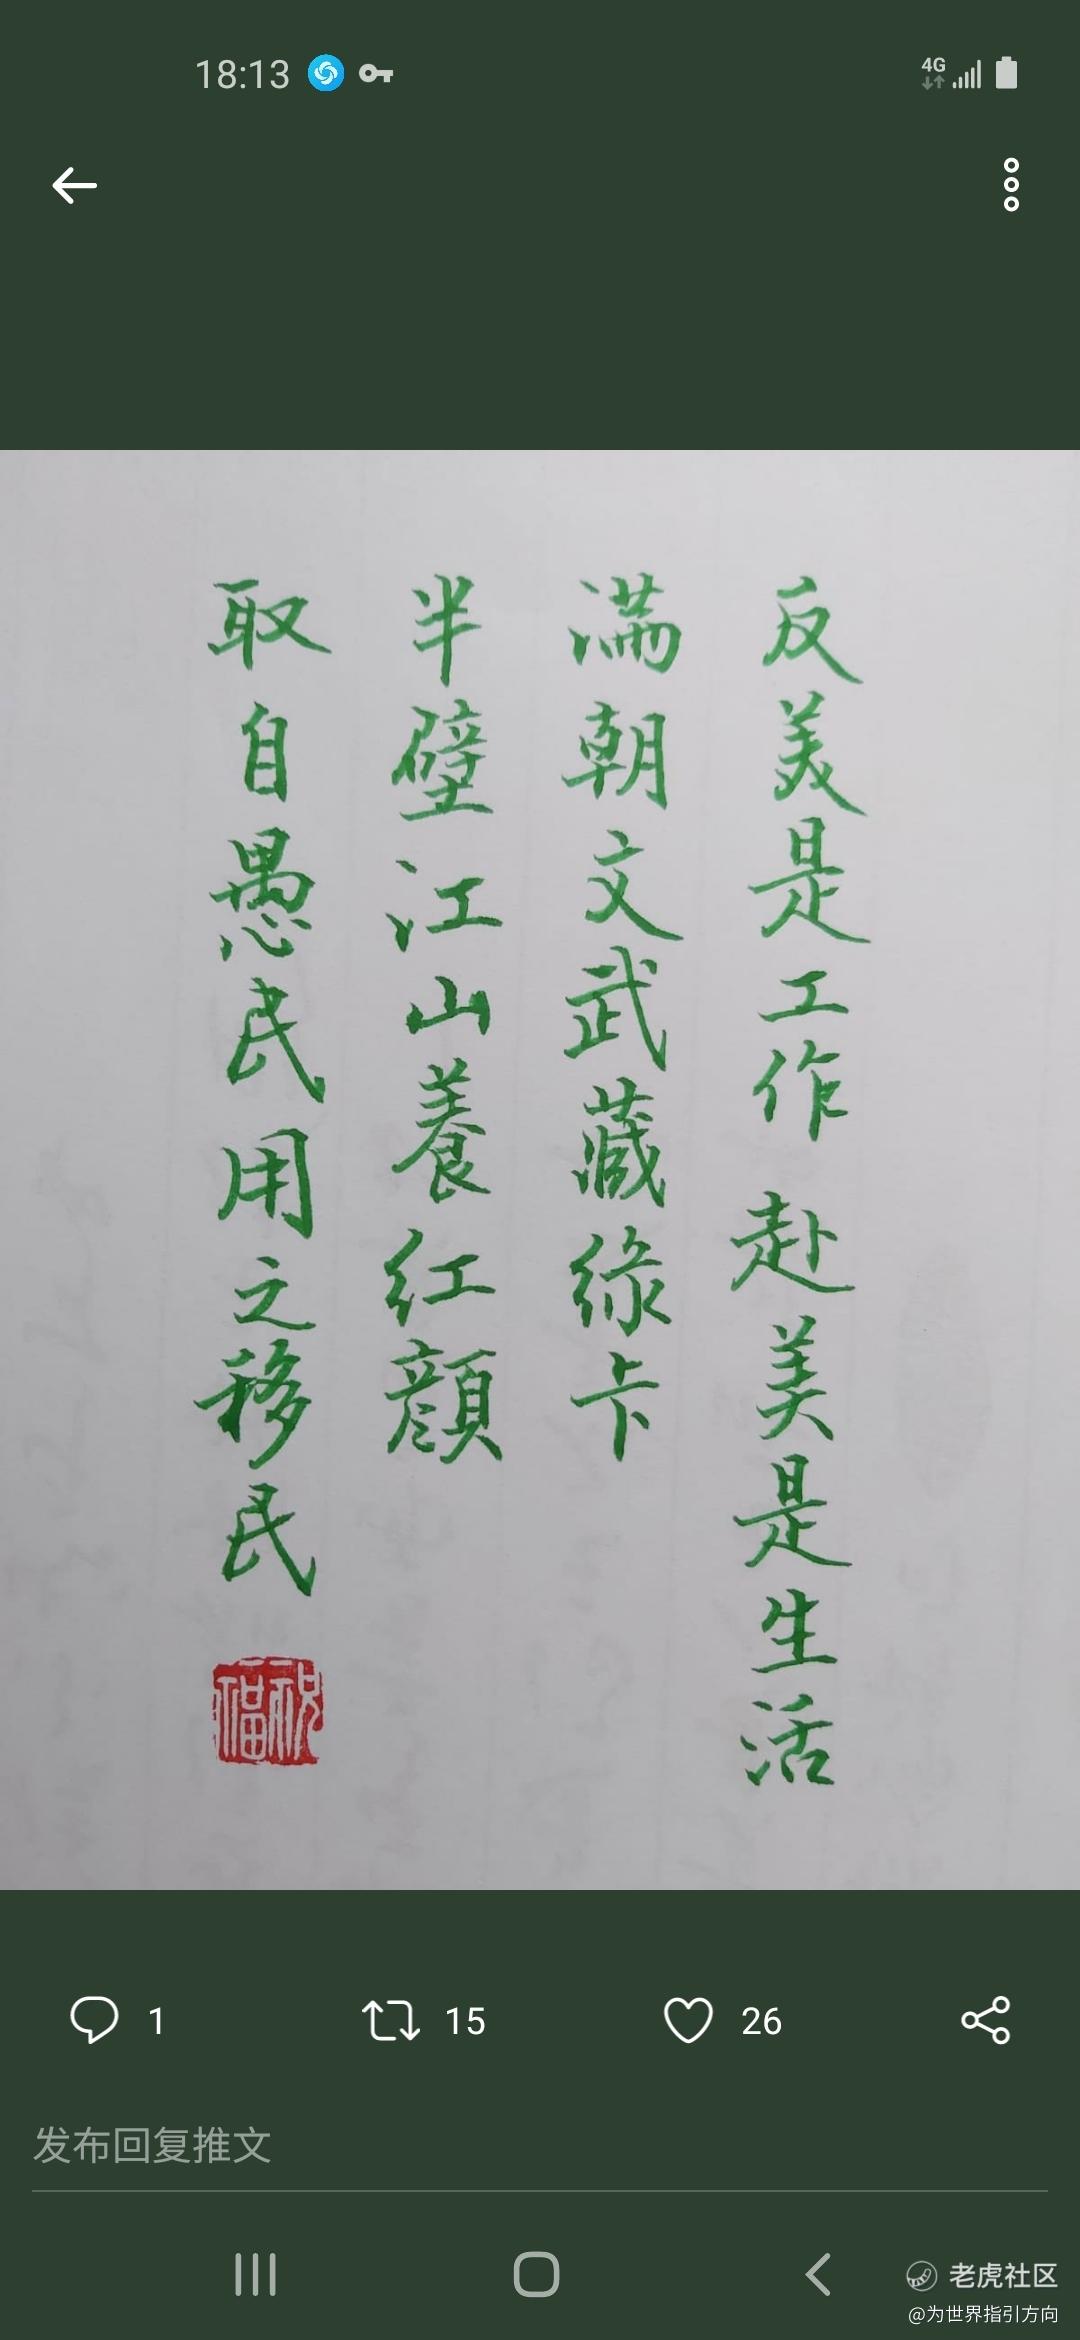 18:13
4G
反美是工作 赴美是生活
满朝文武藏綠卡
半壁江山養红顔
取自愚民用之移民
祝福
1 15 26
发布回复推文
老虎社区
@为世界指引方向